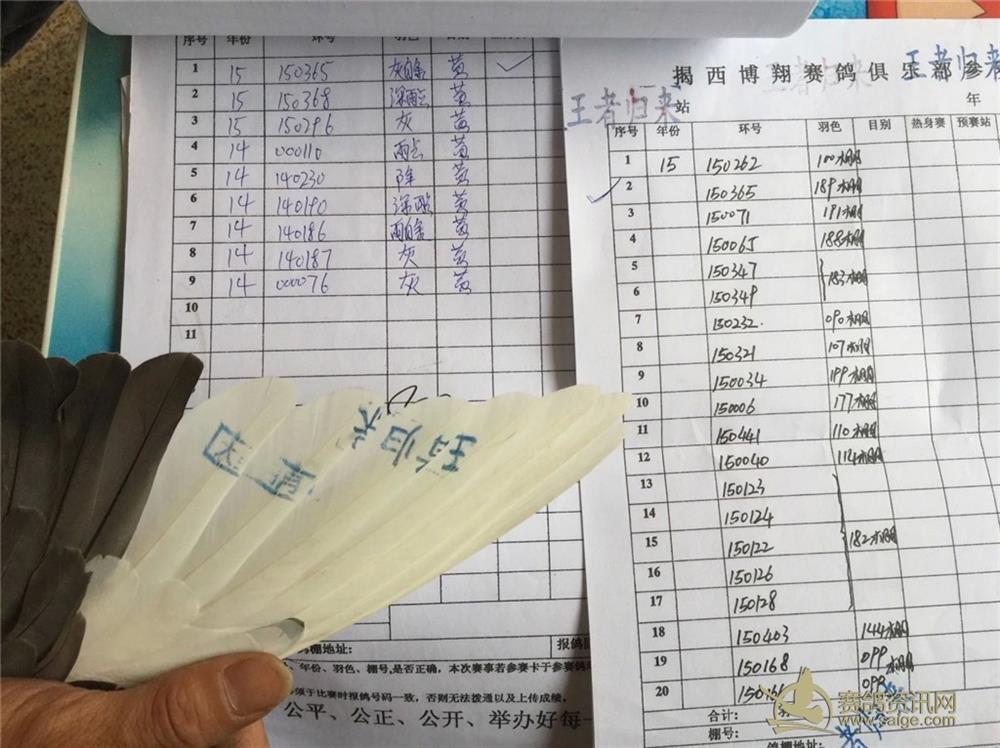 序号 年份 环号 羽色
1 15 150365 灰白条 黄
2 15 150368 深雨点 黄
3 15 150296 灰 黄
4 14 000110 雨点 黄
5 14 140230 黄
6 14 140190 黄
7 14 140186 黄
8 14 140187 灰 黄
9 14 000076 灰 黄
10
11
鸽棚地址:
年份、羽色、棚号,是否正确,本次赛事若参赛卡于参赛鸽
须于比赛时报鸽号码一致,否则无法拨通以及上传成绩。
公平、公正、公开、举办好每一
王者归来
王者归来
揭西博翔赛鸽俱乐部参
王者归来
站 年
序号 年份 环号 羽色 目别 热身赛 预赛站
1 15 150262 100棚
2 150365 189棚
3 150071 191棚
4 150065 188棚
5 150347 183棚
6 150349
7 150232 090棚
8 150321 107棚
9 150034 199棚
10 150006 177棚
11 150441 110棚
12 150040 114棚
13 150123
14 150124
15 150122 182棚
16 150126
17 150128
18 150403 144棚
19 150168 099棚
20
合计:
棚号:
鸽棚地址:
赛鸽资讯网
www.saige.com